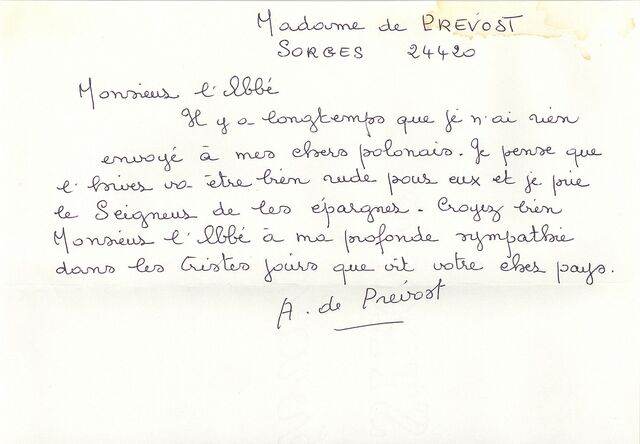 Madame de PREVOST
SORGES 24420
Monsieur l'Abbé
Il y a longtemps que je n'ai rien
envoyé à mes chers polonais. Je pense que
l'hiver va être bien rude pour eux et je prie
le Seigneur de les épargner. Croyez bien
Monsieur l'Abbé à ma profonde sympathie
dans les tristes jours que vit votre cher pays.
A. de Prévost